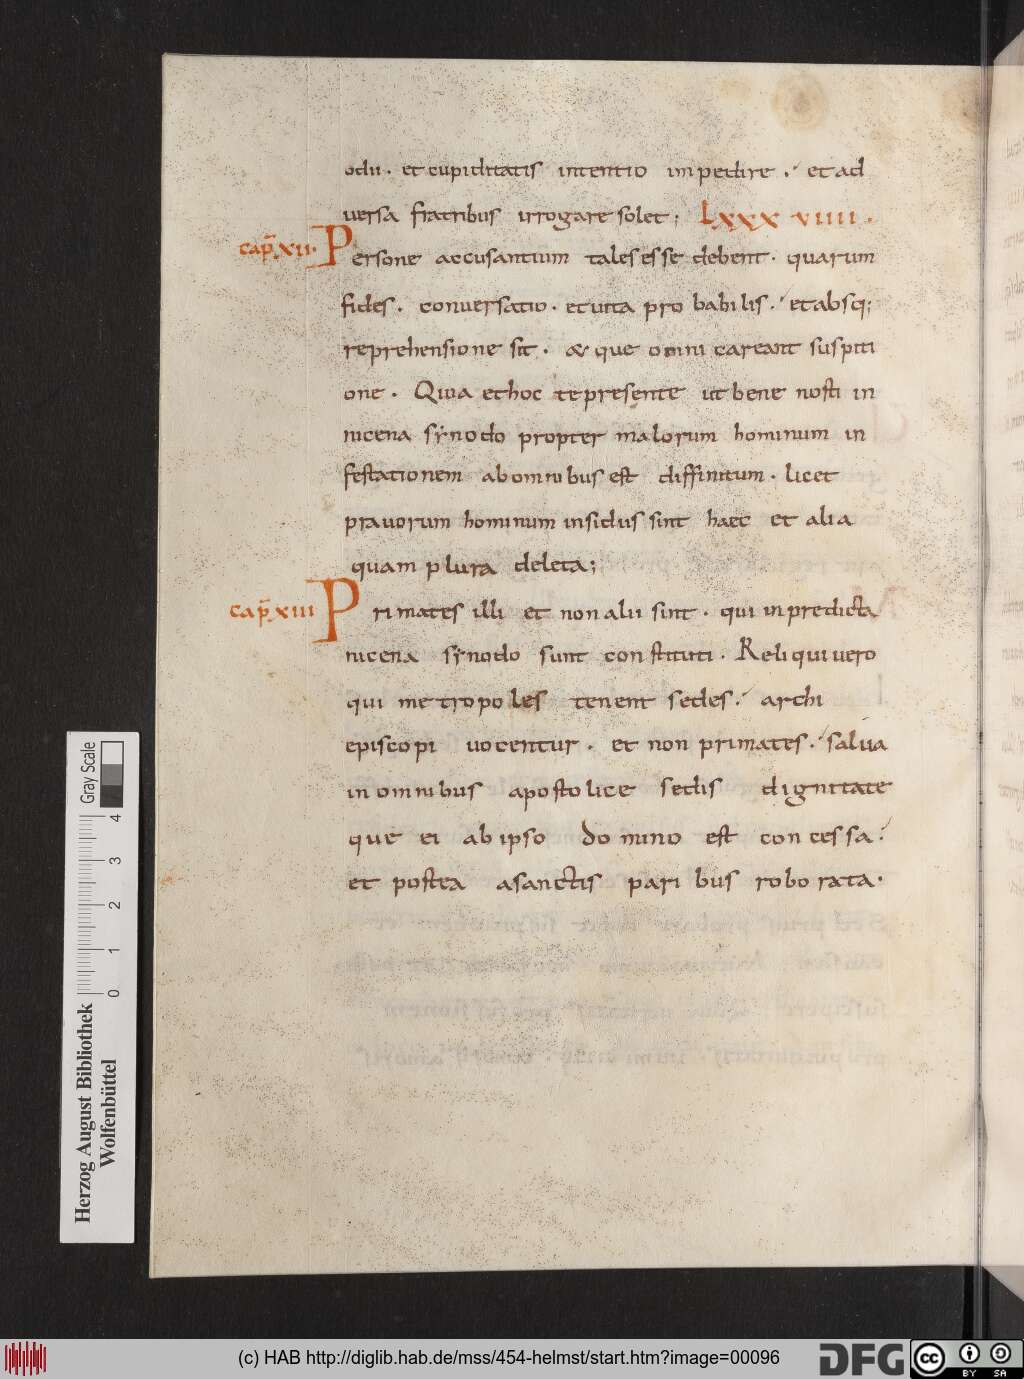 odii . et cupiditatis intentio impedire . et ad
uersa fratribus irrogare solet ; Lxxx viiii .
cap̅ xii . Persone accusantium tales esse debent . quarum
fides . conuersatio . et uita probabilis . et absq;
reprehensione sit . & que omni careant suspiti
one . Quia et hoc te presente ut bene nosti in
nicena synodo propter malorum hominum in
festationem ab omnibus est diffinitum . licet
prauorum hominum insidiis sint haec et alia
quam plura deleta ;
cap̅ xiii Primates illi et non alii sint . qui in predicta
nicena synodo sunt constituti . Reliqui uero
qui metropoles tenent sedes . archi
episcopi uocentur . et non primates . salua
in omnibus apostolice sedis dignitate
que ei ab ipso domino est concessa .
et postea a sanctis patribus roborata .
Gray Scale
4
3
2
1
0
Herzog August Bibliothek
Wolfenbüttel
(c) HAB http://diglib.hab.de/mss/454-helmst/start.htm?image=00096
DFG
cc
BY SA